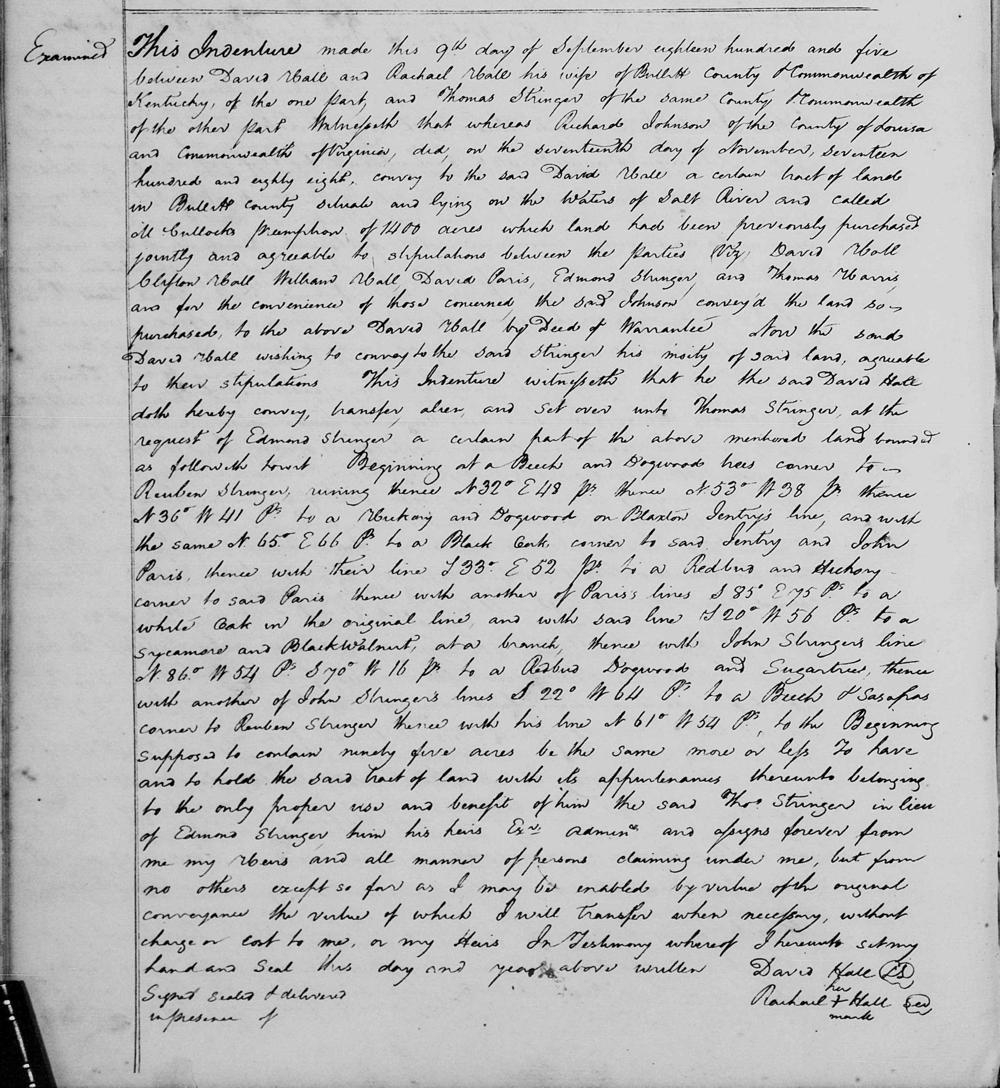 Examined
This Indenture made this 9th day of September eighteen hundred and five
between David Hall and Rachael Hall his wife of Bullitt County & Commonwealth of
Kentucky, of the one part, and Thomas Stringer of the same County & Commonwealth
of the other part Witnesseth that whereas Richard Johnson of the County of Louisa
and Commonwealth of Virginia, did, on the seventeenth day of November, seventeen
hundred and eighty eight, convey to the said David Hall a certain tract of land
in Bullitt County situate and lying on the Waters of Salt River and called
McCullocks Preemption of 1400 acres which land had been previously purchased
jointly and agreable to stipulations between the parties (Viz) David Hall
Clifton Hall William Hall David Paris, Edmond Stringer, and Thomas Harris
and for the convenience of those concerned, the said Johnson convey'd the land so
purchased, to the above David Hall by Deed of Warrantee Now the said
David Hall wishing to convey to the said Stringer his moity of said land, agreable
to their stipulations This Indenture witnesseth that he the said David Hall
doth hereby convey, transfer, alien, and set over unto Thomas Stringer, at the
request of Edmond Stringer a certain part of the above mentioned land bounded
as followith towit Beginning at a Beech and Dogwood trees corner to
Reuben Stringer, runing thence N32° E48 Ps thence N53° W38 Ps thence
N36° W41 Ps to a Hickory and Dogwood on Blaxton Jentry's line, and with
the same N 65° E66 Ps to a Black Oak, corner to said Jentry and John
Paris, thence with their line S33° E52 Ps to a Redbud and Hickory
corner to said Paris thence with another of Paris's lines S85° E75 Ps to a
white Oak in the original line, and with said line S20° W56 Ps to a
Sycamore and Black Walnut, at a branch, thence with John Stringer's line
N86° W54 Ps S70° W16 Ps to a Redbud Dogwood and Sugartree, thence
with another of John Stringer's lines S22° W64 Ps to a Beech & Sasafras
corner to Reuben Stringer thence with his line N61° W54 Ps, to the Beginning
supposed to contain ninety five acres be the same more or less To have
and to hold the said tract of land with its appurtenances thereunto belonging
to the only proper use and benefit of him the said Thos Stringer in lieu
of Edmond Stringer, him his heirs Exrs. Admins and assigns forever from
me my Heirs and all manner of persons claiming under me, but from
no others except so far as I may be enabled by virtue of the original
conveyance the virtue of which I will transfer when necessary, without
charge or cost to me, or my Heirs In Testimony whereof I hereunto set my
hand and Seal this day and year above written David Hall LS
Signed sealed & delivered
in presence of
her
Rachael + Hall
mark